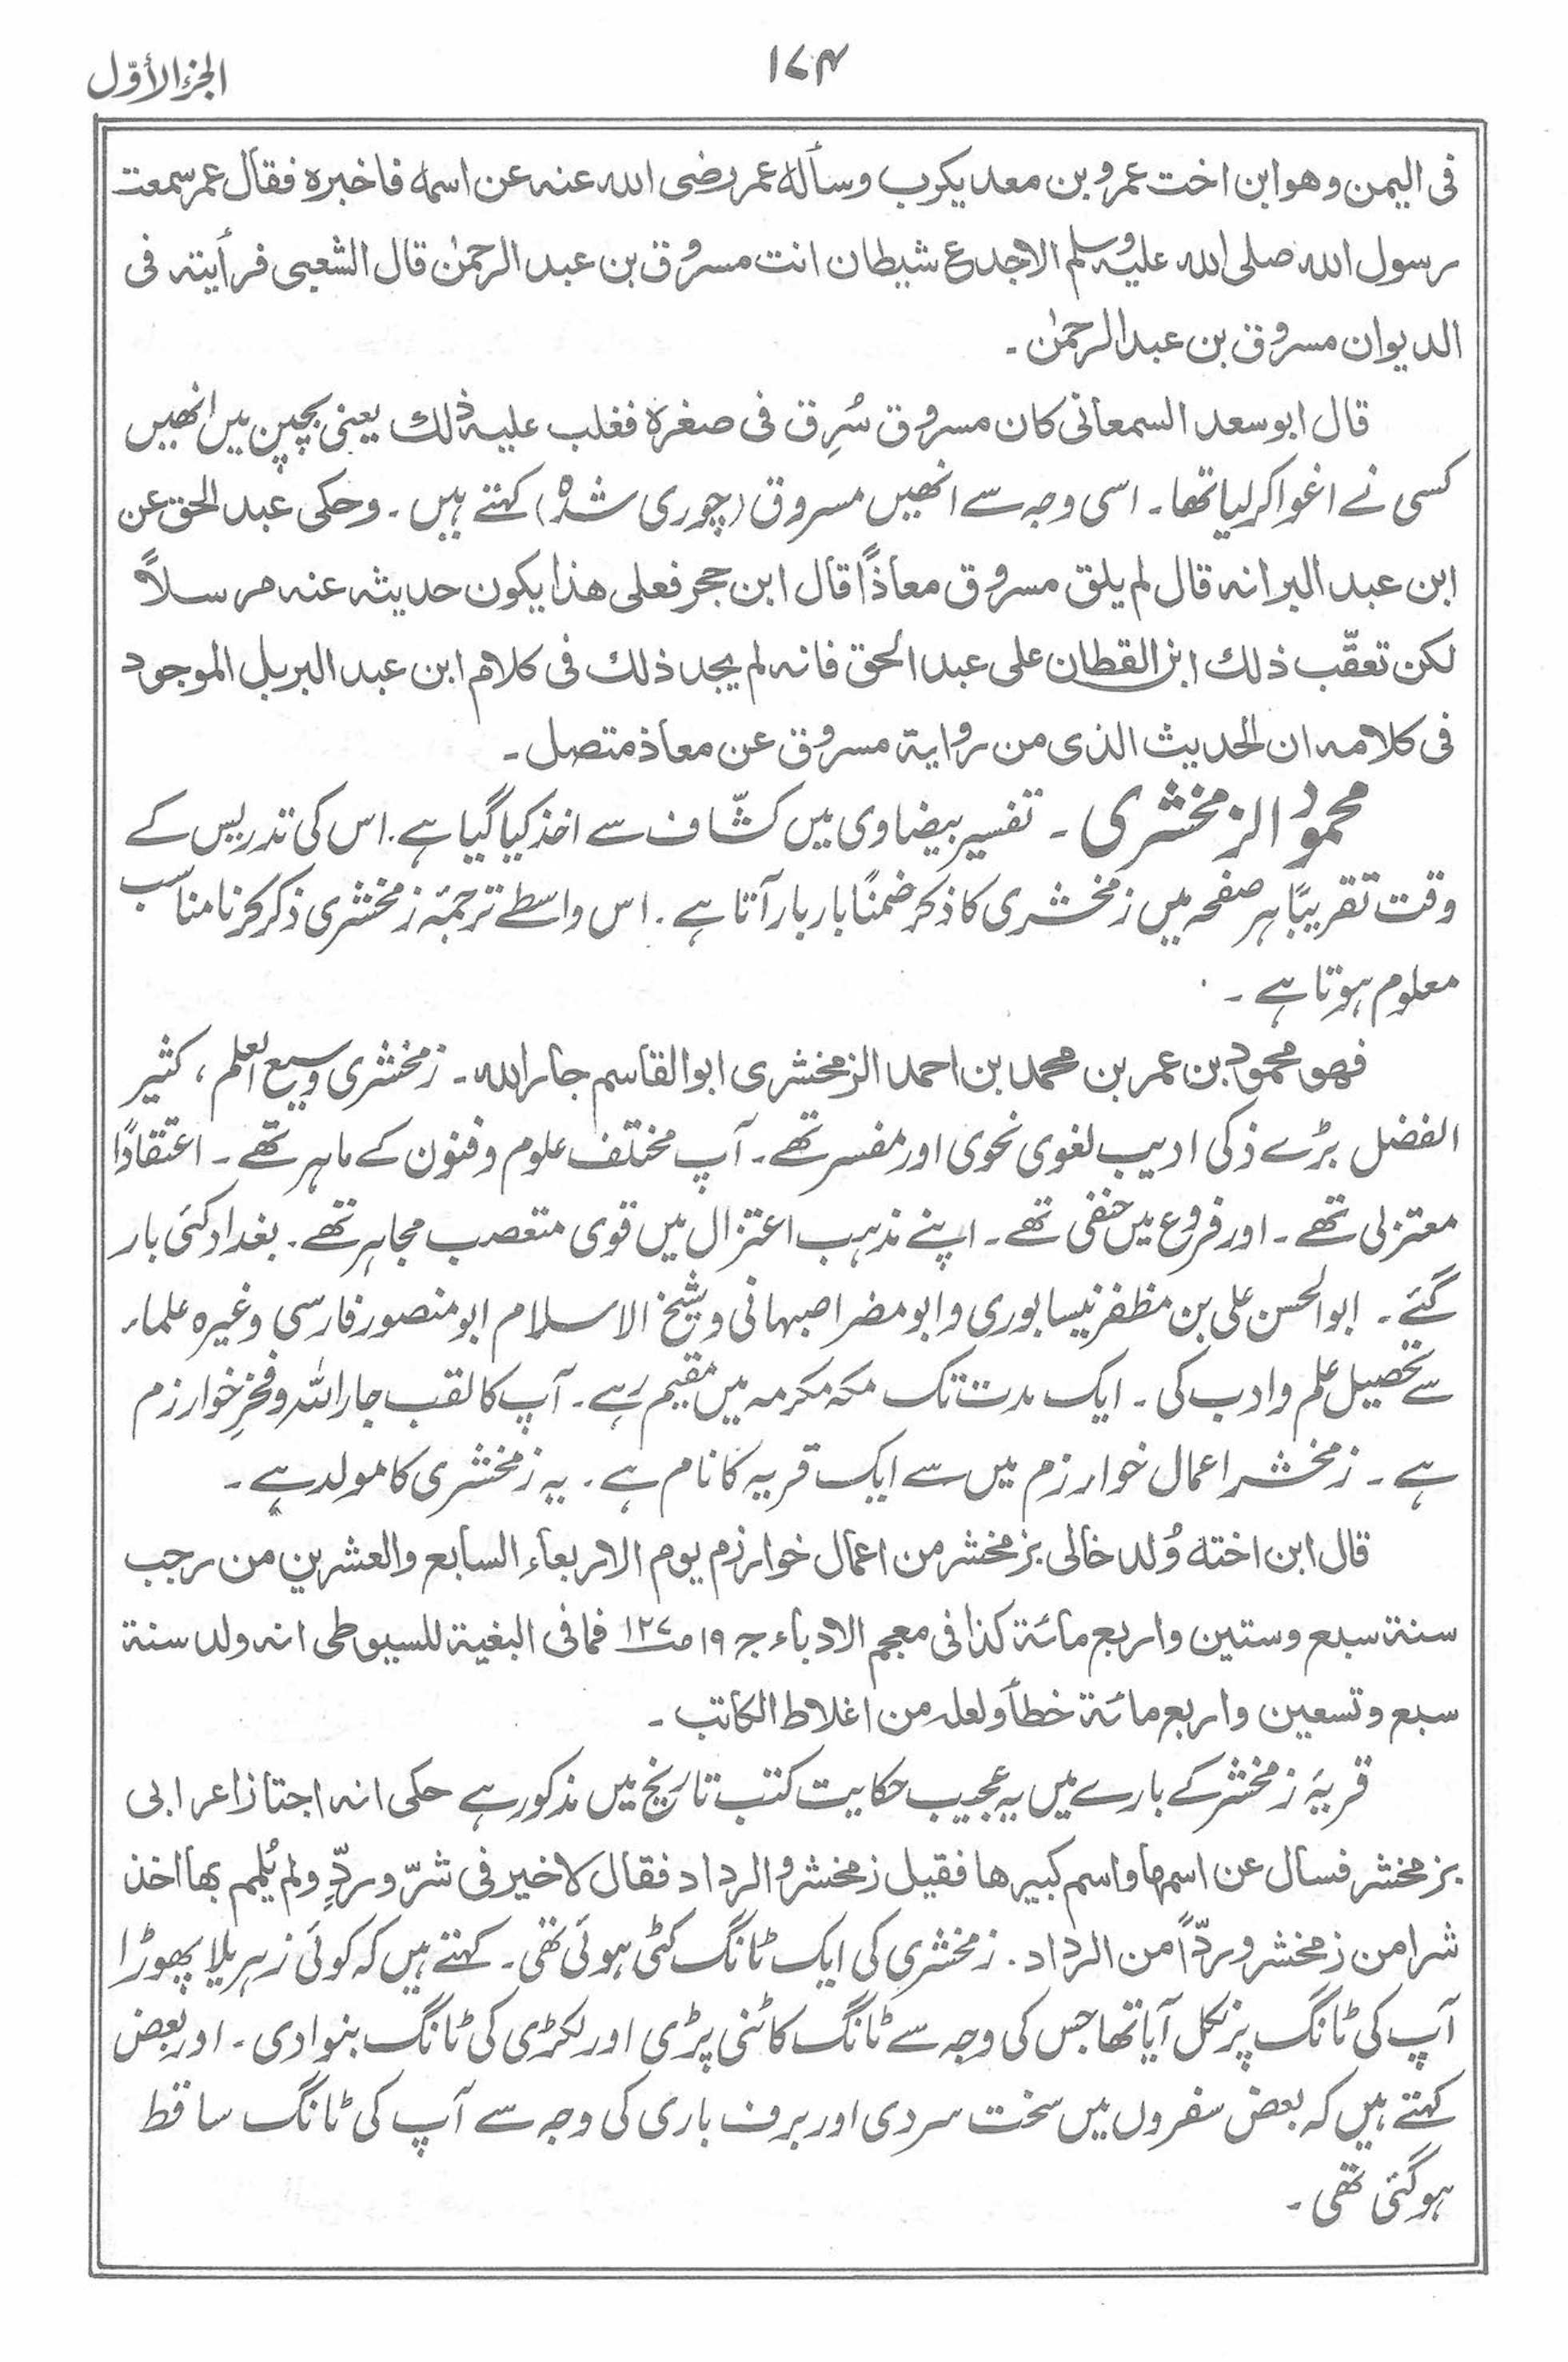 الجزء الأوّل
۱۷۴
فی الیمن وھو ابن اخت عمرو بن معدیکرب وسألہ عمر رضی اللہ عنہ عن اسمہ فاخبرہ فقال عمر سمعت
رسول اللہ صلی اللہ علیہ وسلم الاجدع شیطان انت مسروق بن عبد الرحمٰن قال الشعبی فرأیتہ فی
الدیوان مسروق بن عبد الرحمٰن ۔
قال ابو سعد السمعانی کان مسروق سُرِق فی صغرہ فغلب علیہ ذلک یعنی بچپن میں انھیں
کسی نے اغوا کر لیا تھا۔ اسی وجہ سے انھیں مسروق (چوری شدہ) کہتے ہیں ۔ وحکی عبد الحق عن
ابن عبد البر انہ قال لم یلق مسروق معاذاً قال ابن حجر فعلی ھذا یکون حدیثہ عنہ مرسلاً
لکن تعقّب ذلک ابن القطان علی عبد الحق فانہ لم یجد ذلک فی کلام ابن عبد البر بل الموجود
فی کلامہ ان الحدیث الذی من روایۃ مسروق عن معاذ متصل ۔
محمود الزمخشری ۔ تفسیر بیضاوی میں کشّاف سے اخذ کیا گیا ہے۔ اس کی تدریس کے
وقت تقریبًا ہر صفحہ میں زمخشری کا ذکر ضمنًا بار بار آتا ہے۔ اس واسطے ترجمۂ زمخشری ذکر کرنا مناسب
معلوم ہوتا ہے ۔
فھو محمود بن عمر بن محمد بن احمد الزمخشری ابو القاسم جار اللہ ۔ زمخشری وسیع العلم ، کثیر
الفضل بڑے ذکی ادیب لغوی نحوی اور مفسر تھے۔ آپ مختلف علوم و فنون کے ماہر تھے ۔ اعتقادًا
معتزلی تھے ۔ اور فروع میں حنفی تھے ۔ اپنے مذہب اعتزال میں قوی متعصب مجاہر تھے۔ بغداد کئی بار
گئے ۔ ابو الحسن علی بن مظفر نیسابوری و ابو مضر اصبہانی و شیخ الاسلام ابو منصور فارسی وغیرہ علماء
سے تحصیل علم و ادب کی ۔ ایک مدت تک مکہ مکرمہ میں مقیم رہے ۔ آپ کا لقب جار اللہ و فخرِ خوارزم
ہے ۔ زمخشر اعمال خوارزم میں سے ایک قریہ کا نام ہے ۔ یہ زمخشری کا مولد ہے ۔
قال ابن اختہ وُلد خالی بزمخشر من اعمال خوارزم یوم الاربعاء السابع والعشرین من رجب
سنۃ سبع وستین واربع مائۃ کذا فی معجم الادباء ج ۱۹ ص ۱۲۷ فما فی البغیۃ للسیوطی انہ ولد سنۃ
سبع وتسعین واربع مائۃ خطأ ولعلہ من اغلاط الکاتب ۔
قریۂ زمخشر کے بارے میں یہ عجیب حکایت کتب تاریخ میں مذکور ہے حکی انہ اجتاز اعرابی
بزمخشر فسأل عن اسمھا واسم کبیرھا فقیل زمخشر والرداد فقال لا خیر فی شرّ وردٍّ ولم یُلمم بھا اخذ
شرا من زمخشر وردّاً من الرداد ۔ زمخشری کی ایک ٹانگ کٹی ہوئی تھی ۔ کہتے ہیں کہ کوئی زہریلا پھوڑا
آپ کی ٹانگ پر نکل آیا تھا جس کی وجہ سے ٹانگ کاٹنی پڑی اور لکڑی کی ٹانگ بنوا دی ۔ اور بعض
کہتے ہیں کہ بعض سفروں میں سخت سردی اور برف باری کی وجہ سے آپ کی ٹانگ ساقط
ہوگئی تھی ۔